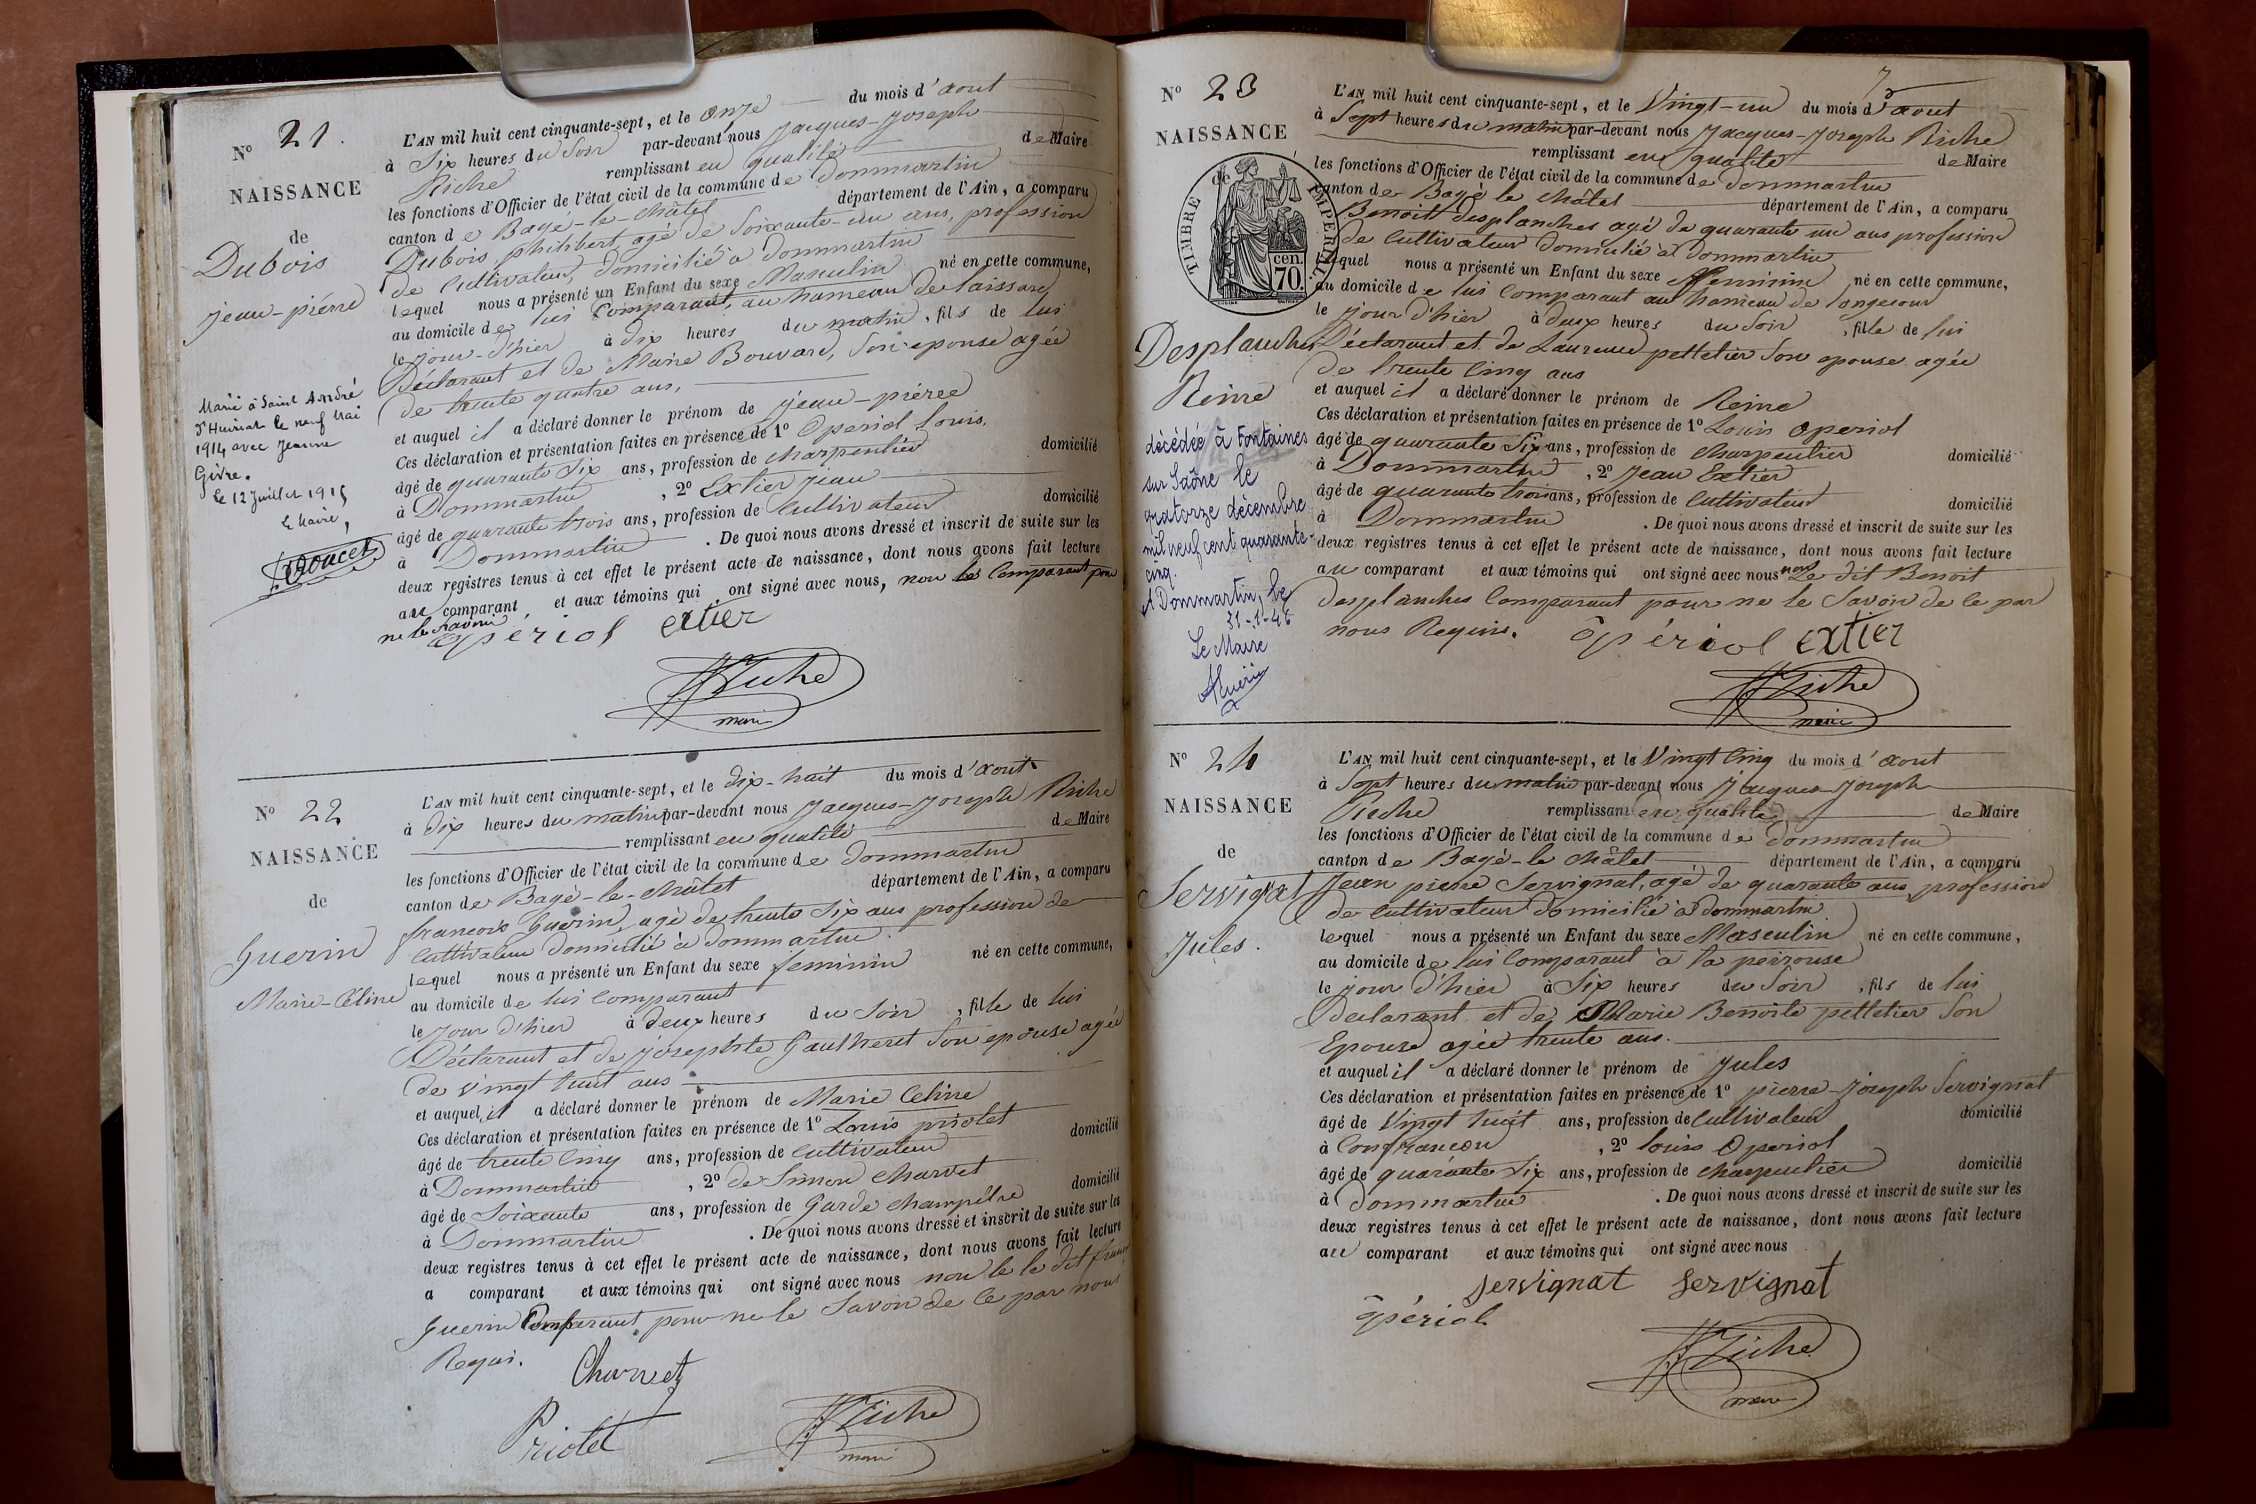 N° 21.
NAISSANCE
de
Dubois
jean-piérre
Marié à Saint André
d'Huiriat le neuf Mai
1914 avec Jeanne
Givre.
le 12 Juillet 1915
le Maire,
L'AN mil huit cent cinquante-sept, et le onze du mois d'aout
à Six heures du Soir par-devant nous Jacques-Joseph
Riche remplissant en qualité de Maire
les fonctions d'Officier de l'état civil de la commune de Dommartin
canton de Bagé-le-châtel département de l'Ain, a comparu
Dubois philibert, agé de Soixante-un ans, profession
de Cultivateur, domicilié à dommartin
lequel nous a présenté un Enfant du sexe Masculin né en cette commune,
au domicile de lui Comparant, au hameau de laissard
le jour-d'hier à dix heures du matin, fils de lui
Déclarant et de Marie Bouvard, Son épouse agée
de trente quatre ans,
et auquel il a déclaré donner le prénom de jean-piérre
Ces déclaration et présentation faites en présence de 1° Operiol Louis,
âgé de quarante Six ans, profession de charpentier domicilié
à Dommartin, 2° Extier jean
âgé de quarante trois ans, profession de Cultivateur domicilié
à Dommartin. De quoi nous avons dressé et inscrit de suite sur les
deux registres tenus à cet effet le présent acte de naissance, dont nous avons fait lecture
au comparant et aux témoins qui ont signé avec nous, non les Comparant pour
ne le Savoir
opériol extier
Riche
maire
N° 22
NAISSANCE
de
Guerin
Marie-Céline
L'AN mil huit cent cinquante-sept, et le dix-huit du mois d'aout
à dix heures du matin par-devant nous Jacques-Joseph Riche
remplissant en qualité de Maire
les fonctions d'Officier de l'état civil de la commune de dommartin
canton de Bagé-le-châtel département de l'Ain, a comparu
francois Guerin, agé de trente Six ans profession de
Cultivateur domicilié à dommartin
lequel nous a présenté un Enfant du sexe feminin né en cette commune,
au domicile de lui Comparant
le jour d'hier à deux heures du Soir, fille de lui
Déclarant et de josephte Gautheret Son épouse agée
de vingt huit ans
et auquel il a déclaré donner le prénom de Marie Celine
Ces déclaration et présentation faites en présence de 1° Louis priolet
âgé de trente Cinq ans, profession de Cultivateur domicilié
à Dommartin, 2° de Simon Charvet
âgé de Soixante ans, profession de Garde champêtre domicilié
à Dommartin. De quoi nous avons dressé et inscrit de suite sur les
deux registres tenus à cet effet le présent acte de naissance, dont nous avons fait lecture
a comparant et aux témoins qui ont signé avec nous non le le dit
Guerin Comparant pour ne le Savoir de ce par nous
Requi.
Charvet
Priolet
Riche
maire
7
N° 23
NAISSANCE
de
TIMBRE IMPERIAL
70 cen.
Desplanches
Reine
décédée à Fontaines
sur Saône le
quatorze décembre
mil neuf cent quarante-
cinq.
A Dommartin, le
31-1-46
Le Maire
L'AN mil huit cent cinquante-sept, et le Vingt-un du mois d'aout
à Sept heures du matin par-devant nous Jacques-Joseph Riche
remplissant en qualité de Maire
les fonctions d'Officier de l'état civil de la commune de dommartin
canton de Bagé le châtel département de l'Ain, a comparu
Benoitt desplanches agé de quarante un ans profession
de Cultivateur domicilié à dommartin
lequel nous a présenté un Enfant du sexe feminin né en cette commune,
au domicile de lui Comparant au hameau de longecour
le jour d'hier à deux heures du Soir, fille de lui
Déclarant et de Laurence pelletier Son épouse agée
de trente Cinq ans
et auquel il a déclaré donner le prénom de Reine
Ces déclaration et présentation faites en présence de 1° Louis operiol
âgé de quarante Six ans, profession de charpentier domicilié
à Dommartin, 2° Jean Extier
âgé de quarante trois ans, profession de Cultivateur domicilié
à Dommartin. De quoi nous avons dressé et inscrit de suite sur les
deux registres tenus à cet effet le présent acte de naissance, dont nous avons fait lecture
au comparant et aux témoins qui ont signé avec nous non Le dit Benoit
desplanches Comparant pour ne le Savoir de ce par
nous Requis. opériol extier
Riche
maire
N° 24
NAISSANCE
de
Servignat
Jules.
L'AN mil huit cent cinquante-sept, et le Vingt Cinq du mois d'aout
à Sept heures du matin par-devant nous Jacques-Joseph
Riche remplissant en qualité de Maire
les fonctions d'Officier de l'état civil de la commune de dommartin
canton de Bagé-le châtel département de l'Ain, a comparu
Jean pierre Servignat, agé de quarante ans profession
de Cultivateur domicilié à dommartin
lequel nous a présenté un Enfant du sexe Masculin né en cette commune,
au domicile de lui Comparant à la peirouse
le jour d'hier à Six heures du Soir, fils de lui
Declarant et de Marie Benoite pelletier Son
Epouse agée trente ans.
et auquel il a déclaré donner le prénom de Jules
Ces déclaration et présentation faites en présence de 1° pierre-joseph Servignat
âgé de Vingt huit ans, profession de Cultivateur domicilié
à Confrancon, 2° louis Operiol
âgé de quarante Six ans, profession de charpentier domicilié
à dommartin. De quoi nous avons dressé et inscrit de suite sur les
deux registres tenus à cet effet le présent acte de naissance, dont nous avons fait lecture
au comparant et aux témoins qui ont signé avec nous
Servignat Servignat
opériol
Riche
maire